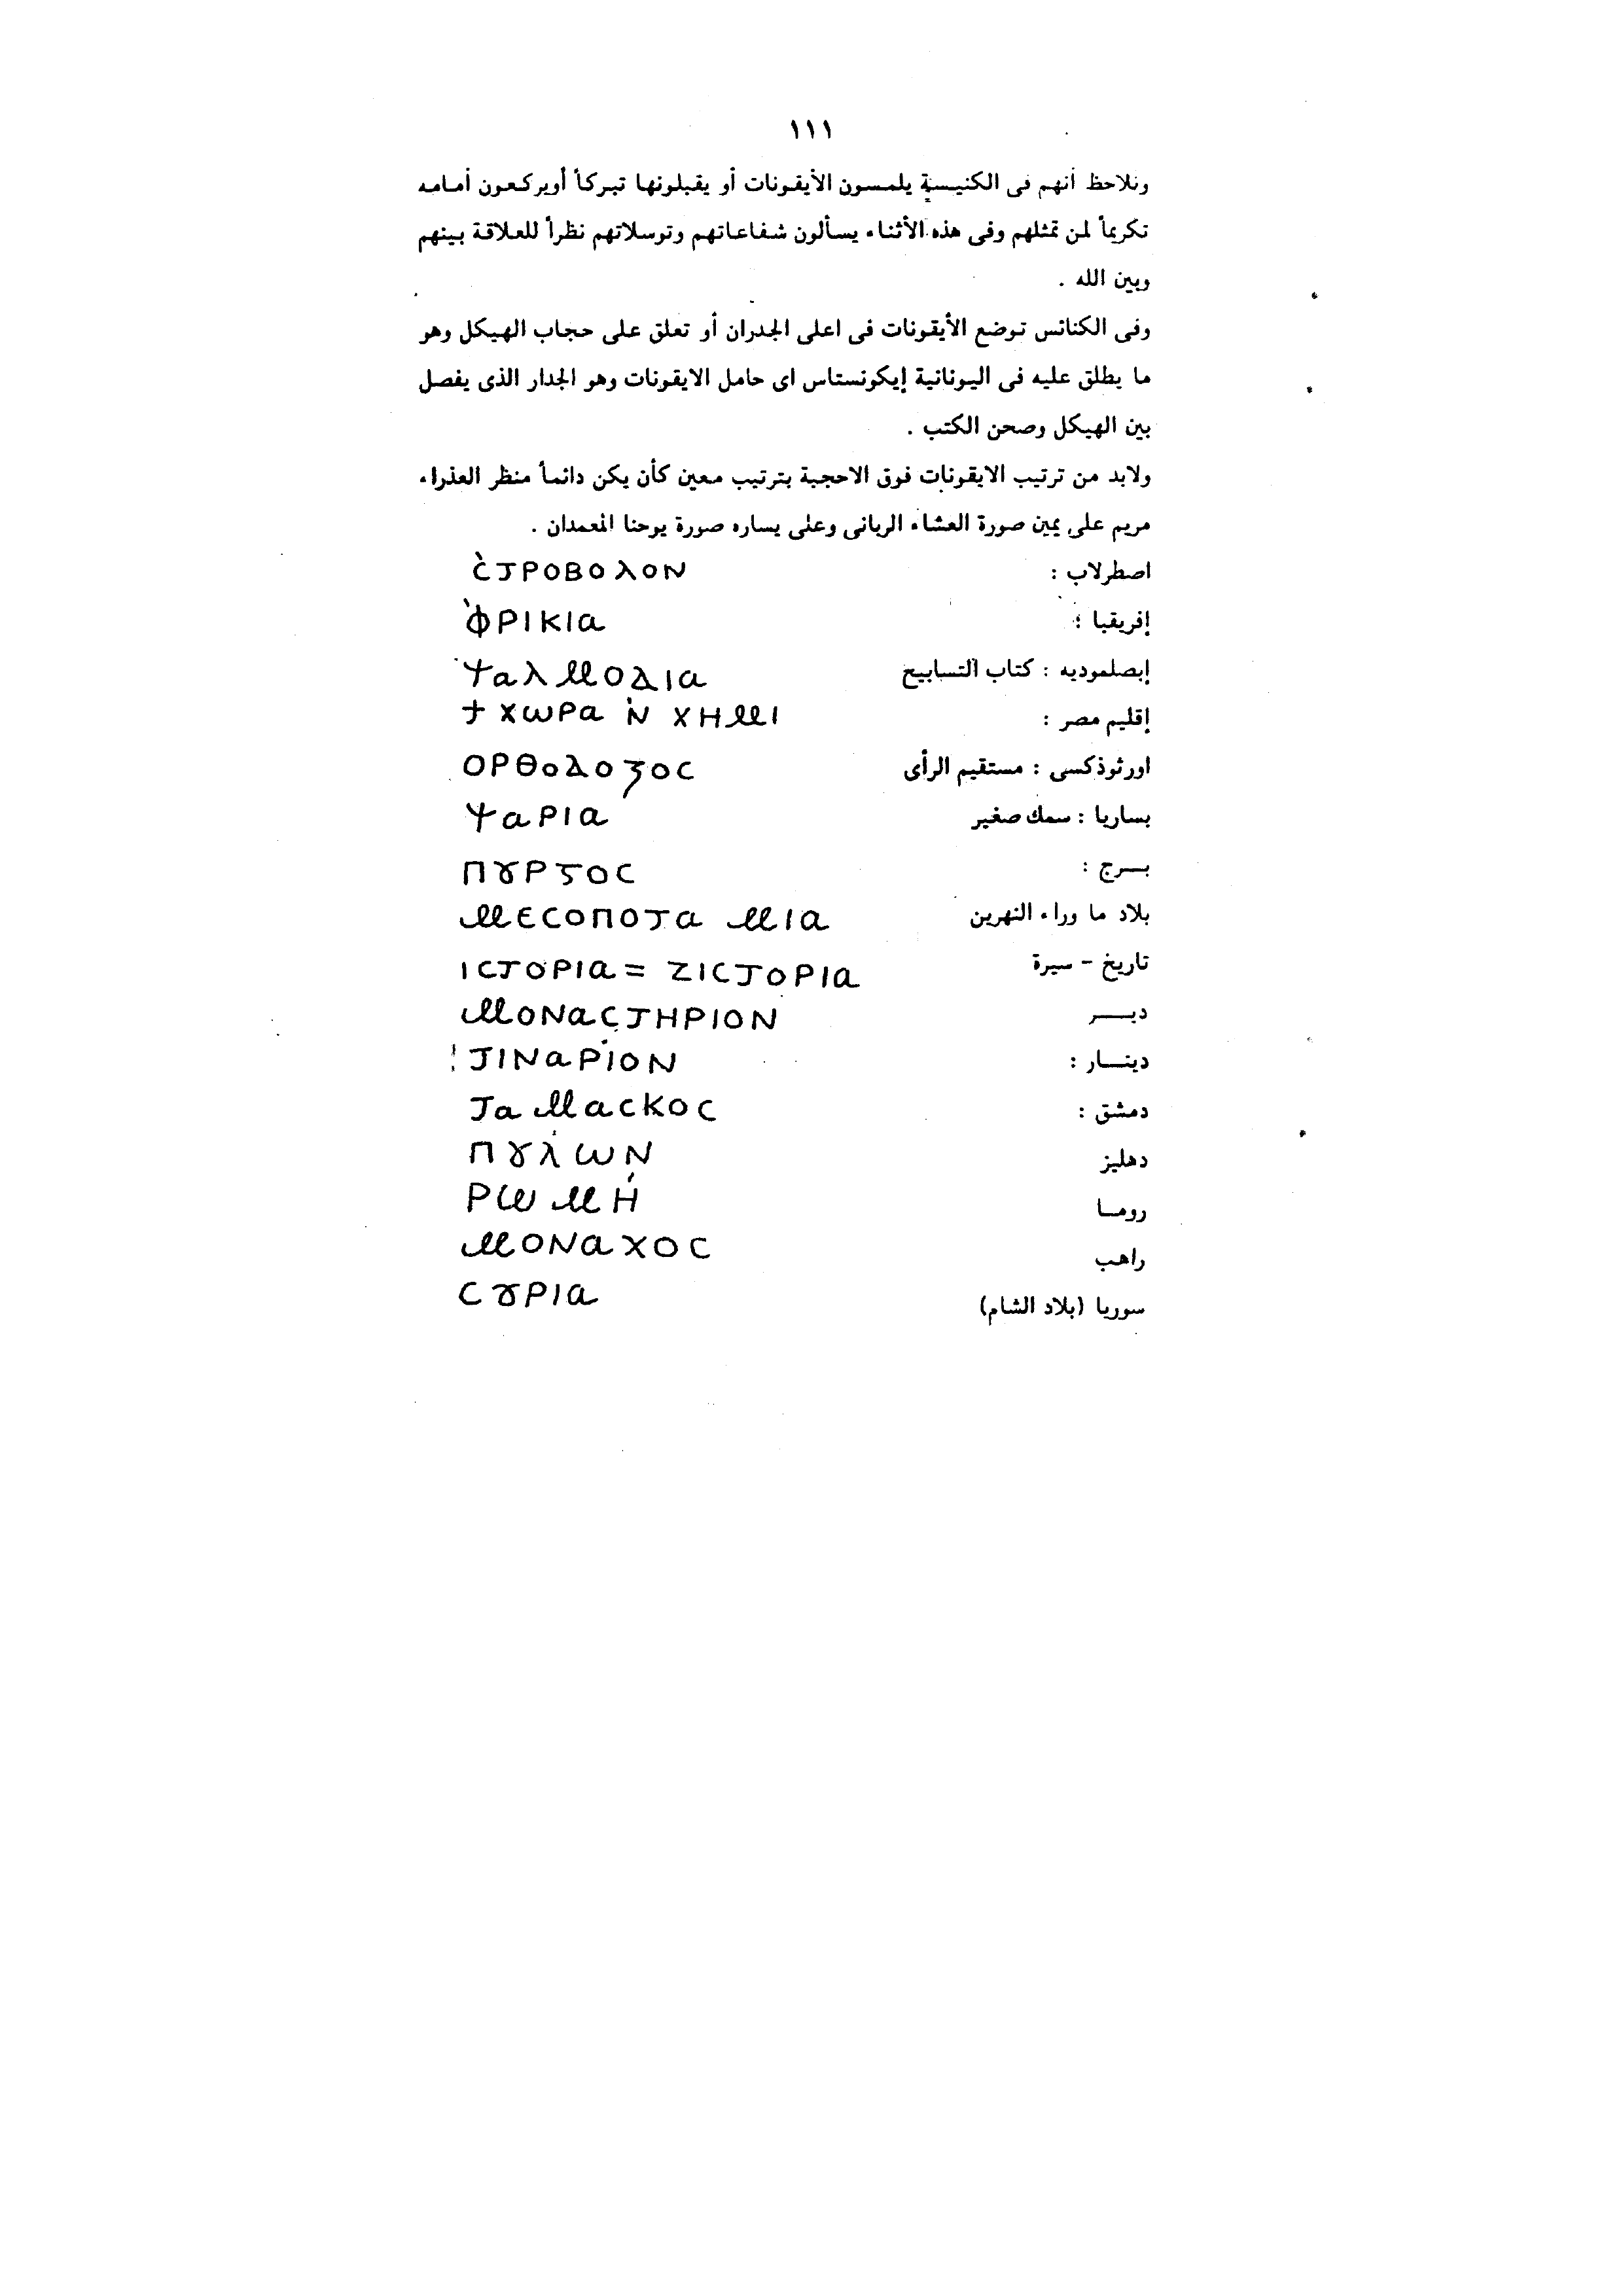 ١١١
ونلاحظ أنهم فى الكنيسة يلمسون الأيقونات أو يقبلونها تبركاً أويركعون أمامه
تكريماً لمن تمثلهم وفى هذه الأثناء يسألون شفاعاتهم وترسلاتهم نظراً للعلاقة بينهم
وبين الله .
وفى الكنائس توضع الأيقونات فى اعلى الجدران أو تعلق على حجاب الهيكل وهو
ما يطلق عليه فى اليونانية إيكونستاس اى حامل الايقونات وهو الجدار الذى يفصل
بين الهيكل وصحن الكتب .
ولابد من ترتيب الايقونات فوق الاحجبة بترتيب معين كأن يكن دائماً منظر العذراء
مريم على يمين صورة العشاء الربانى وعلى يساره صورة يوحنا المعمدان .
اصطرلاب : ⲥ̀ⲧⲣⲟⲃⲟⲗⲟⲛ
إفريقيا : ⲫ̀ⲣⲓⲕⲓⲁ
إبصلموديه : كتاب التسابيح ⲯⲁⲗⲙⲟⲇⲓⲁ
إقليم مصر : ϯ ⲭⲱⲣⲁ ⲛ̀ ⲭⲏⲙⲓ
اورثوذكسى : مستقيم الرأى ⲟⲣⲑⲟⲇⲟⲝⲟⲥ
بساريا : سمك صغير ⲯⲁⲣⲓⲁ
بـــرج : ⲡⲩⲣⲅⲟⲥ
بلاد ما وراء النهرين ⲙⲉⲥⲟⲡⲟⲧⲁ ⲙⲓⲁ
تاريخ - سيرة ⲓⲥⲧⲟⲣⲓⲁ = ϩⲓⲥⲧⲟⲣⲓⲁ
ديـــر ⲙⲟⲛⲁⲥⲧⲏⲣⲓⲟⲛ
دينـــار : ⲧⲓⲛⲁⲣⲓⲟⲛ
دمشق : ⲧⲁⲙⲁⲥⲕⲟⲥ
دهليز ⲡⲩⲗⲱⲛ
رومـا ⲣⲱⲙⲏ̀
راهب ⲙⲟⲛⲁⲭⲟⲥ
سوريا (بلاد الشام) ⲥⲩⲣⲓⲁ